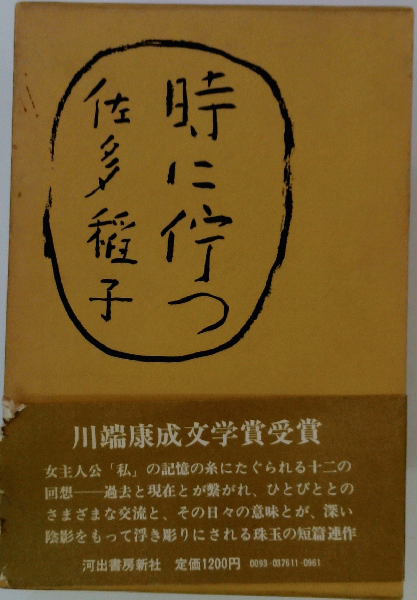 時に佇つ
佐多稲子
川端康成文学賞受賞
女主人公「私」の記憶の糸にたぐられる十二の
回想――過去と現在とが繋がれ、ひとびととの
さまざまな交流と、その日々の意味とが、深い
陰影をもって浮き彫りにされる珠玉の短篇連作
河出書房新社 定価1200円 0093-037611-0961